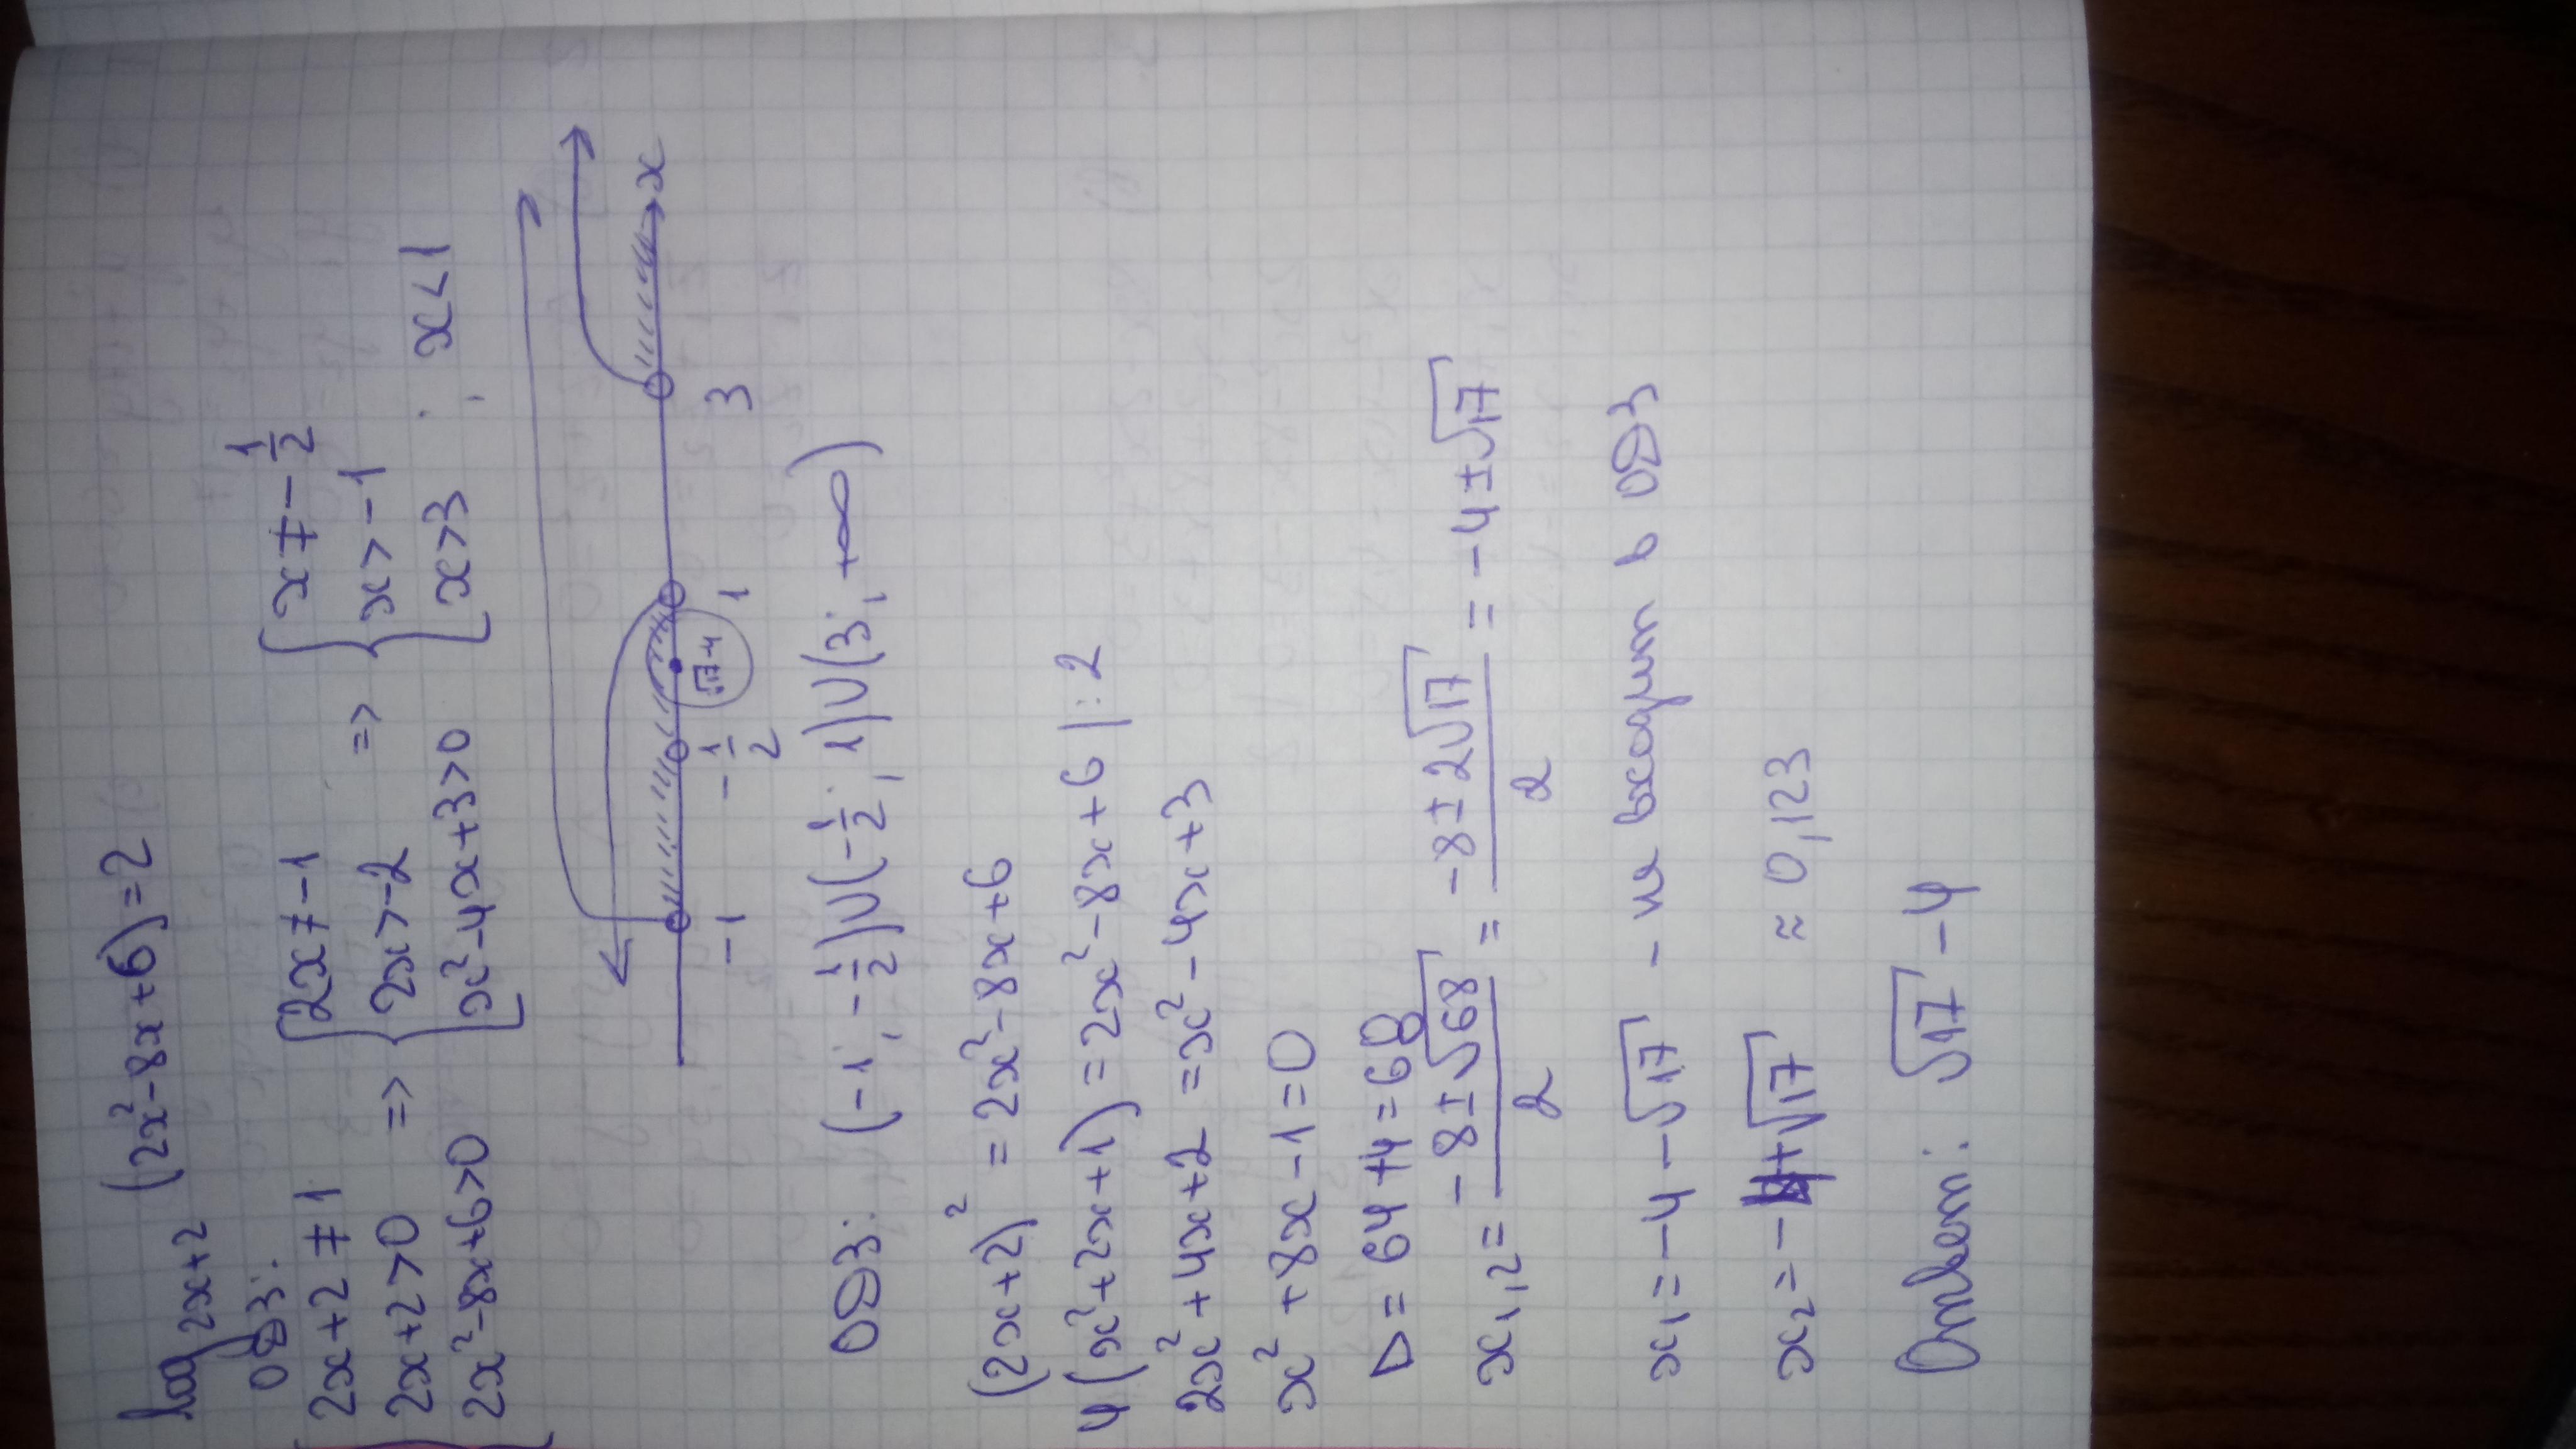 log₂ₓ₊₂ (2x²-8x+6)=2
ОДЗ:
{2x+2≠1 {2x≠-1 {x≠-1/2
{2x+2>0 => {2x>-2 => {x>-1
{2x²-8x+6>0 {x²-4x+3>0 {x>3 ; x<1
-1 -1/2 √17-4 1 3 x
ОДЗ: (-1; -1/2)∪(-1/2; 1)∪(3; +∞)
(2x+2)² = 2x²-8x+6
4(x²+2x+1)=2x²-8x+6 |:2
2x²+4x+2=x²-4x+3
x²+8x-1=0
D=64+4=68
x₁,₂= (-8±√68)/2 = (-8±2√17)/2 = -4±√17
x₁=-4-√17 - не входит в ОДЗ
x₂=-4+√17 ≈ 0,123
Ответ: √17-4